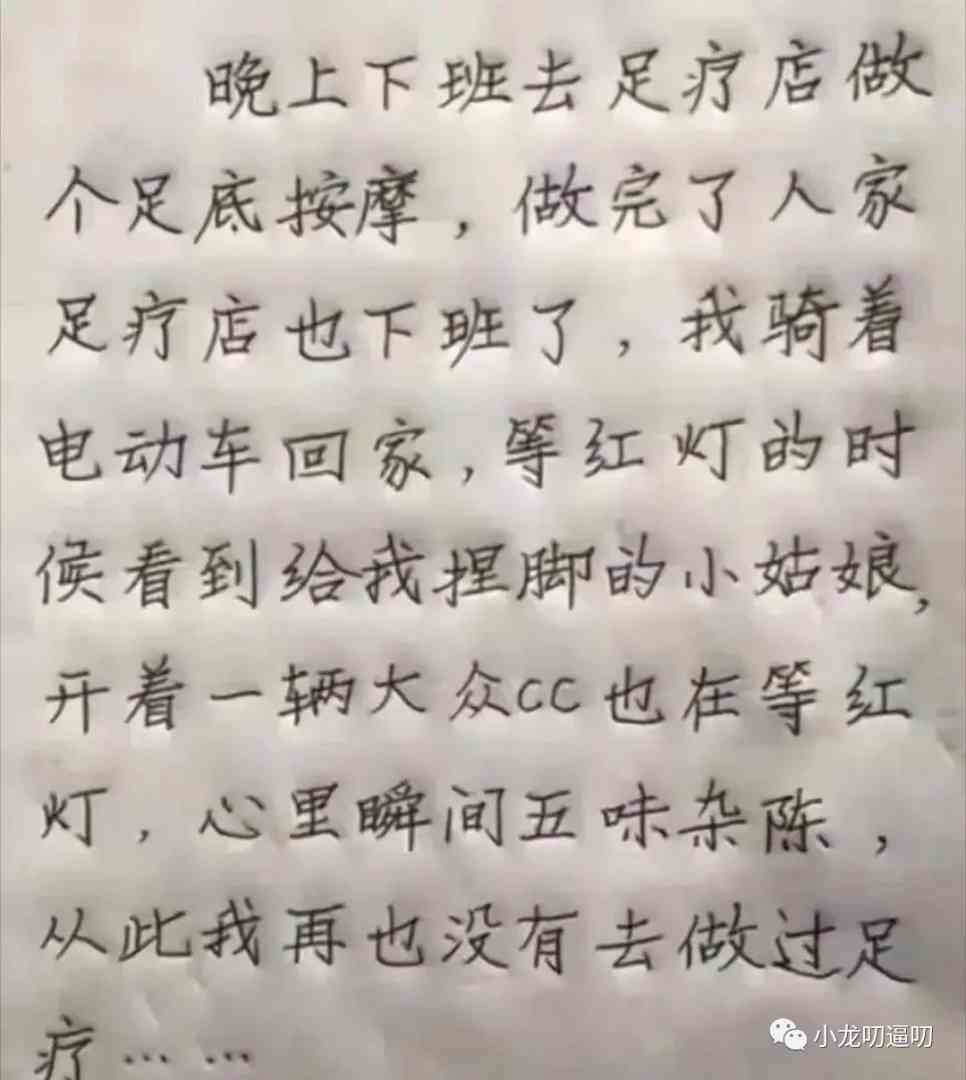 晚上下班去足疗店做
个足底按摩，做完了人家
足疗店也下班了，我骑着
电动车回家，等红灯的时
候看到给我捏脚的小姑娘，
开着一辆大众CC也在等红
灯，心里瞬间五味杂陈，
从此我再也没有去做过足
疗……
小龙叨逼叨